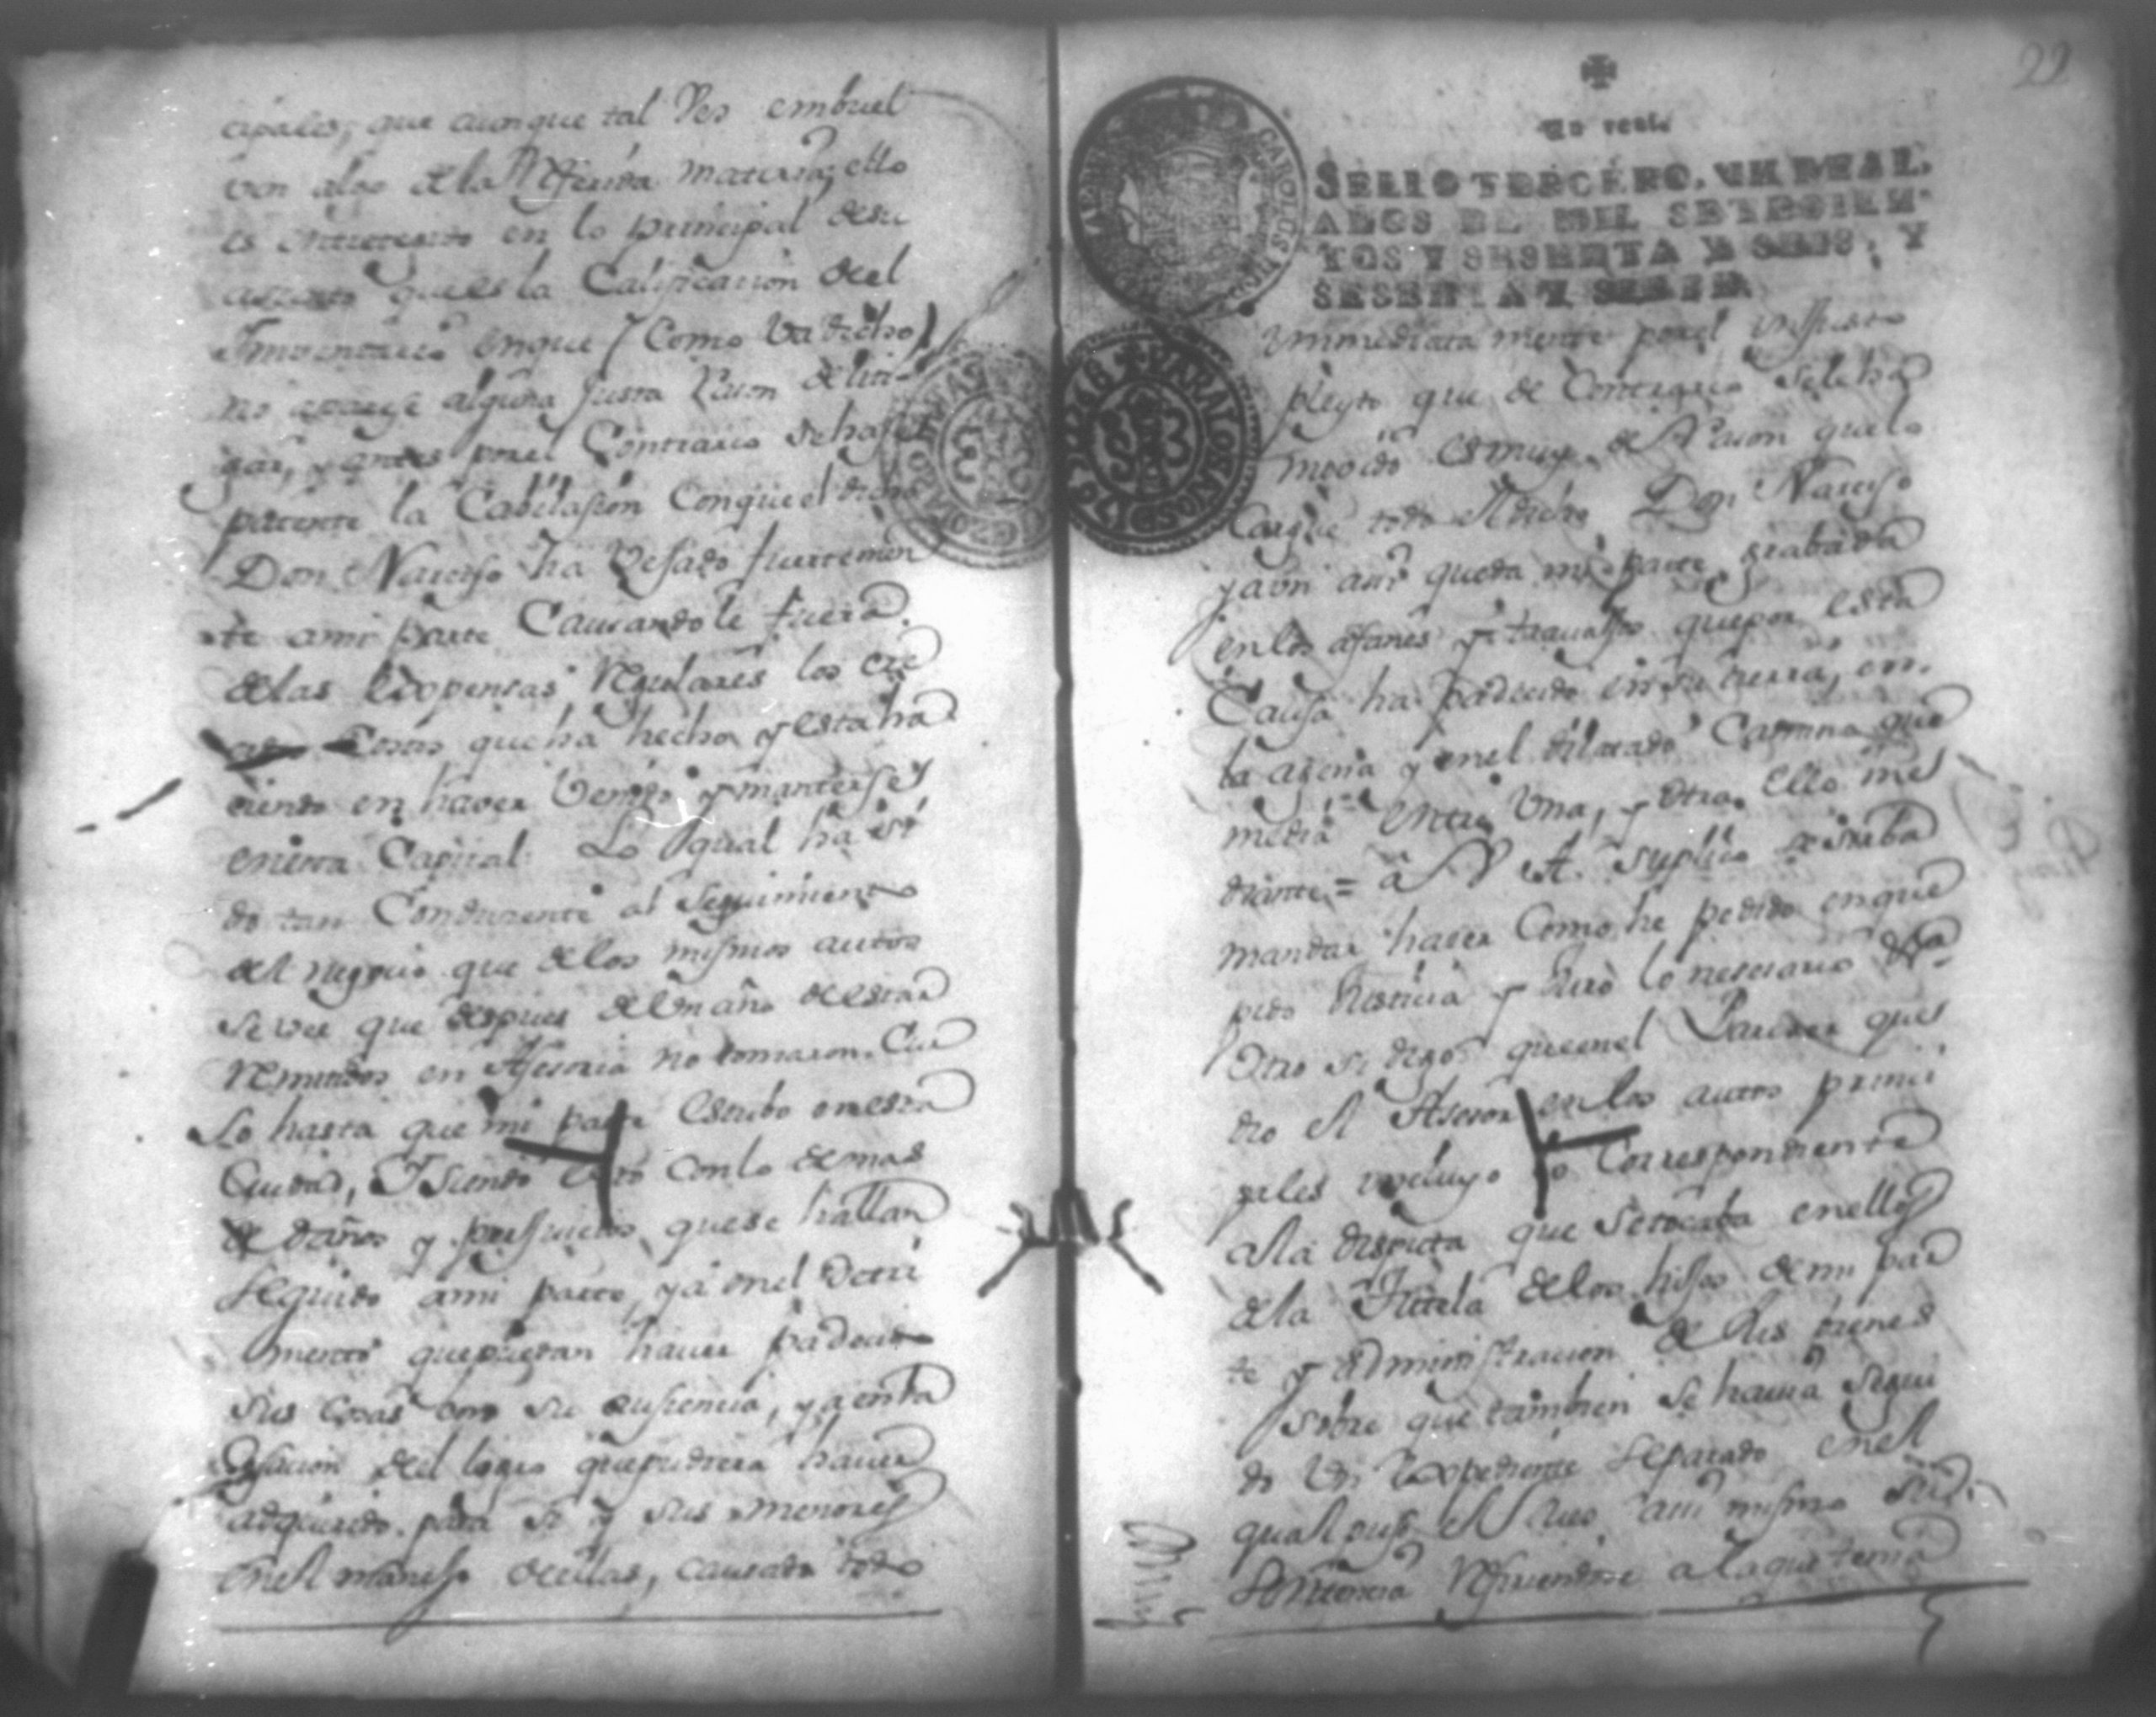 cipales, que aunque tal ves embuel
ven algo de la Referida materia, ello
es entretegido en lo principal de su
asumto que es la Calificacion de el
Imventario enque (Como va dicho)
no aparese alguna Justa Rason de liti-
gar, y antes por el Contrario se hase
patente la Cabilasion Conque el dicho
Don Narciso ha Vejado fuertemen
te ami parte Causandole fuera
de las Expensas Regulares los cre
Costos que ha hecho y esta ha
ciendo en haver Venido y mantenerse
enesta Capital. Lo qual ha si
do tan Condusente al Seguimiento
del negocio que de los mismos autos
se vee que despues de Un año de estar
Remitidos en Asesoria no tomaron Cur
so hasta que mi parte estubo en esta
Ciudad, Y siendo esto con lo demas
de daños y perjuicios que se hallan
seguido ami parte, ya en el detri
mento que puedan haver padecido
sus cosas con su ausencia, ya en la
Cesacion del logro que pudiera haver
adquirido para si y sus menores
en el manejo de ellas, causado todo
22
Un real.
SELLO TERCERO, UN REAL,
AÑOS DE MIL SETECIEN-
TOS Y SESENTA Y SEIS, Y
SESENTA Y SIETE.
CAROLUS
immediatamente por el injusto
pleyto que de Contrario se le ha
movido es muy de Rason que lo
Cargue todo el dicho Don Narciso
y aun assi queda mi parte grabada
en los afanes y trauajos que por esta
Causa ha padecido en su tierra, en
la agena y en el dilatado Camino que
media entre Una, y otra. Ello me
diante = a V A. suplico se sirba
mandar haser Como he pedido en que
pido Justicia y Juro lo nesesario &a
Otro si digo que en el Pareser que
dio el Asesor en los autos princi
pales incluyo lo Correspondiente
ala disputa que se tocaba en ellos
de la Tutela de los hijos de mi par
te y administracion de sus bienes
sobre que tambien se havia segui
do Un Expediente separado en el
qual puso el Jues assi mismo su
Sentencia Refiriendose a la que tenia